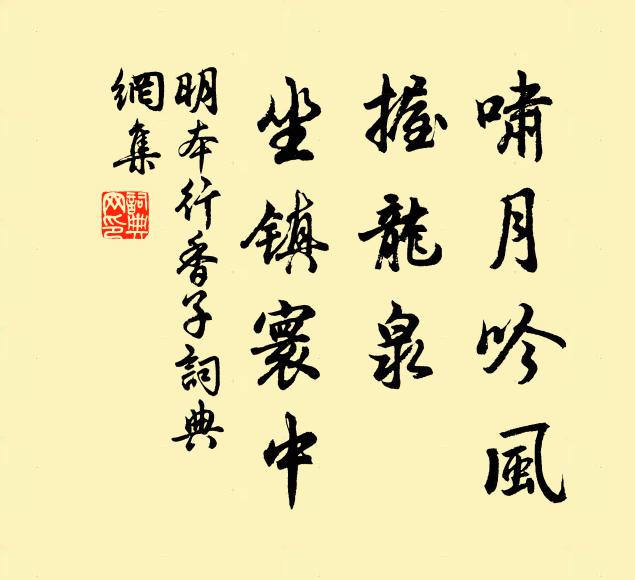 嘯月吟風
握龍泉
坐鎮寰中
明本行香子詞典
網集
詞典
网印